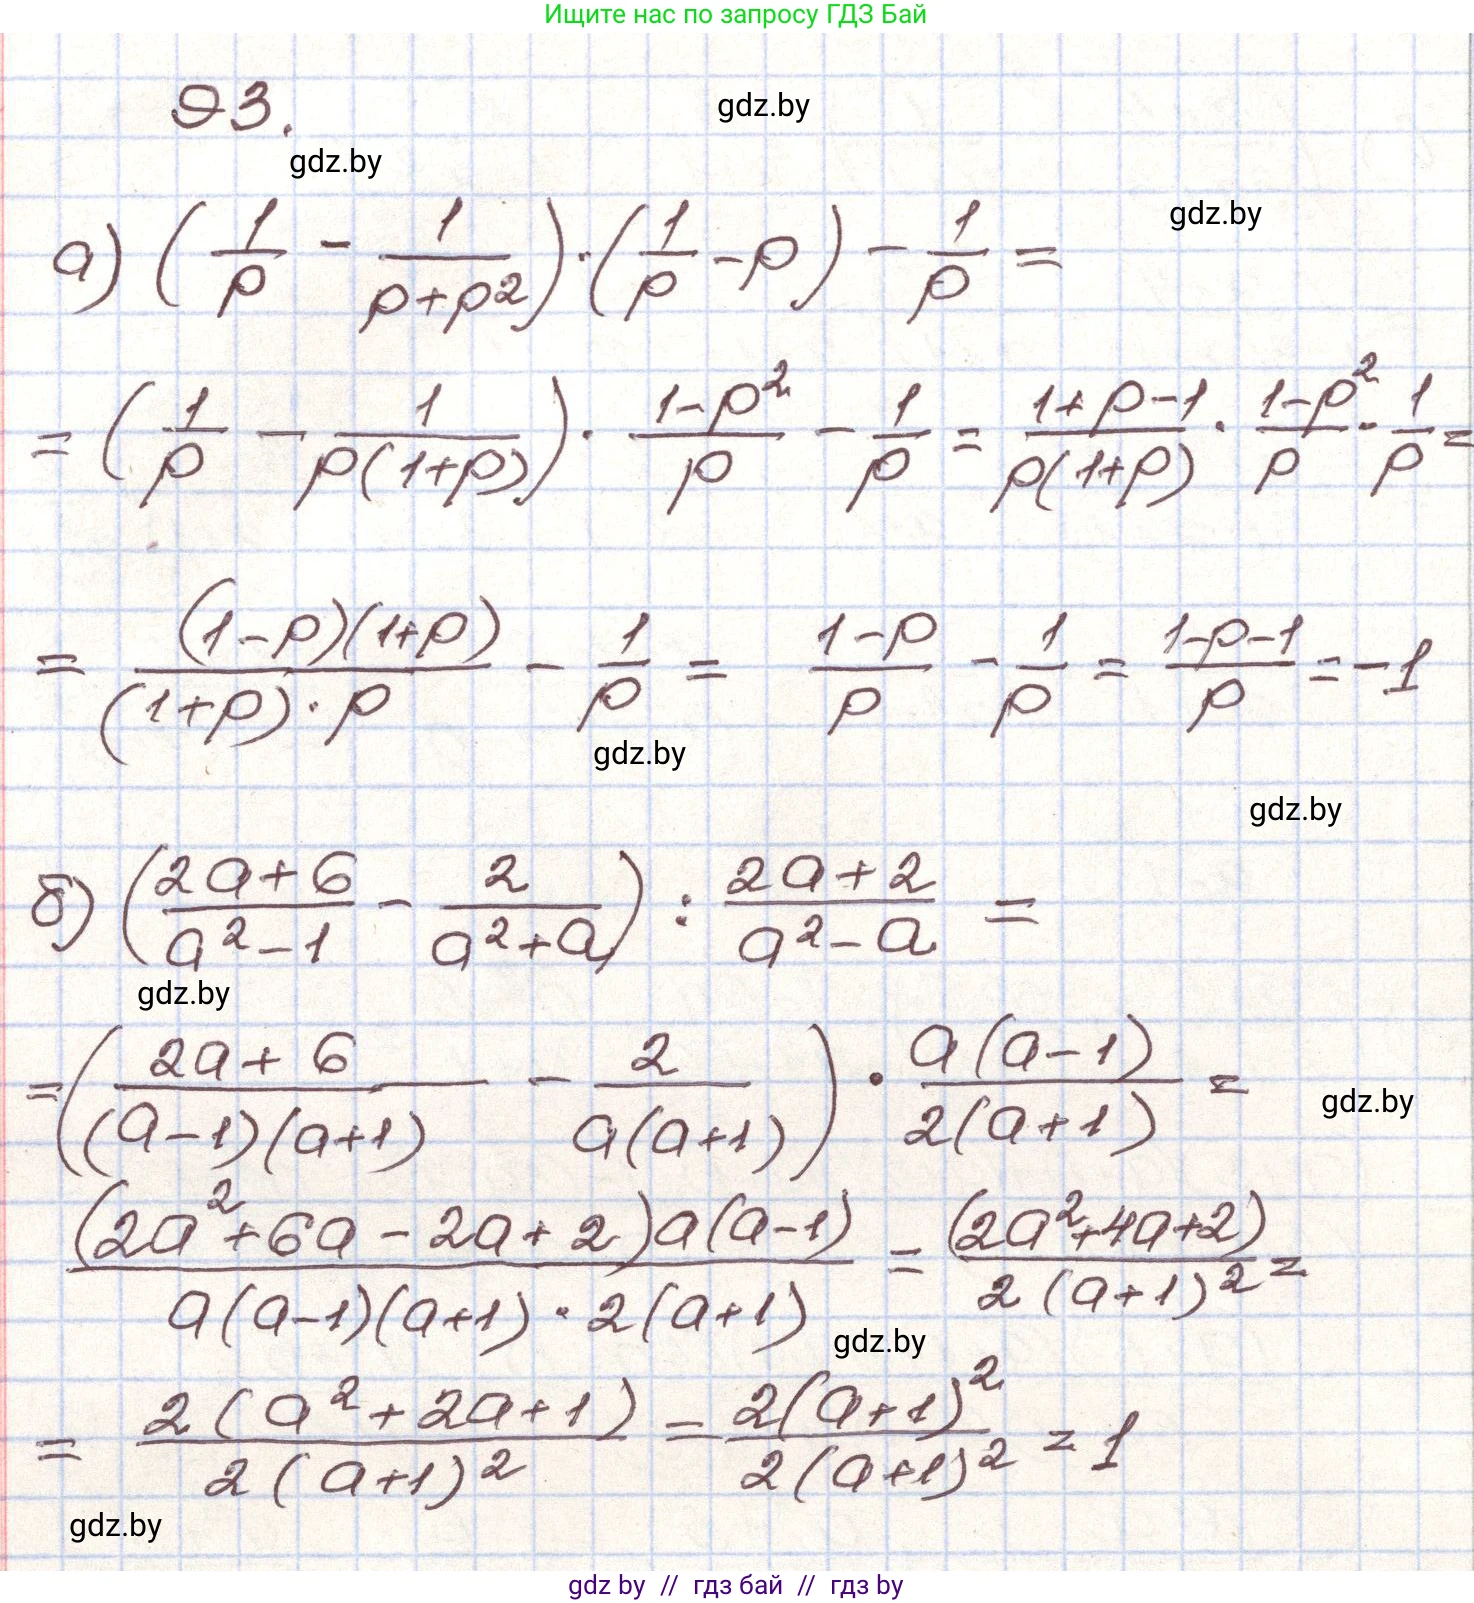 Ищите нас по запросу ГДЗ Бай
93.
gdz.by
gdz.by
gdz.by
а) (1/p - 1/(p+p²)) · (1/p - p) - 1/p =
= (1/p - 1/(p(1+p))) · (1-p²)/p - 1/p = (1+p-1)/(p(1+p)) · (1-p²)/p - 1/p =
= ((1-p)(1+p))/((1+p)·p) - 1/p = (1-p)/p - 1/p = (1-p-1)/p = -1
gdz.by
gdz.by
б) ((2a+6)/(a²-1) - 2/(a²+a)) : (2a+2)/(a²-a) =
gdz.by
= ((2a+6)/((a-1)(a+1)) - 2/(a(a+1))) · (a(a-1))/(2(a+1)) =
gdz.by
((2a²+6a-2a+2)a(a-1))/(a(a-1)(a+1)·2(a+1)) = (2a²+4a+2)/(2(a+1)²) =
gdz.by
= (2(a²+2a+1))/(2(a+1)²) = (2(a+1)²)/(2(a+1)²) = 1
gdz.by
gdz by // гдз бай // гдз by